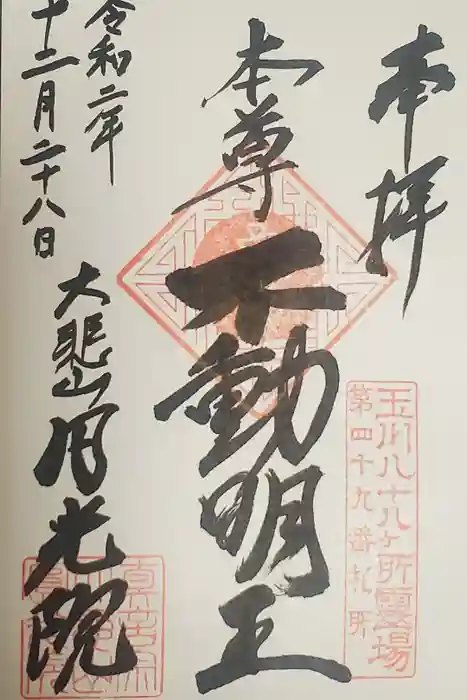 奉拝
玉川八十八ヶ所霊場
第四十九番札所
本尊
不動明王
令和二年
十二月二十八日
大悲山月光院